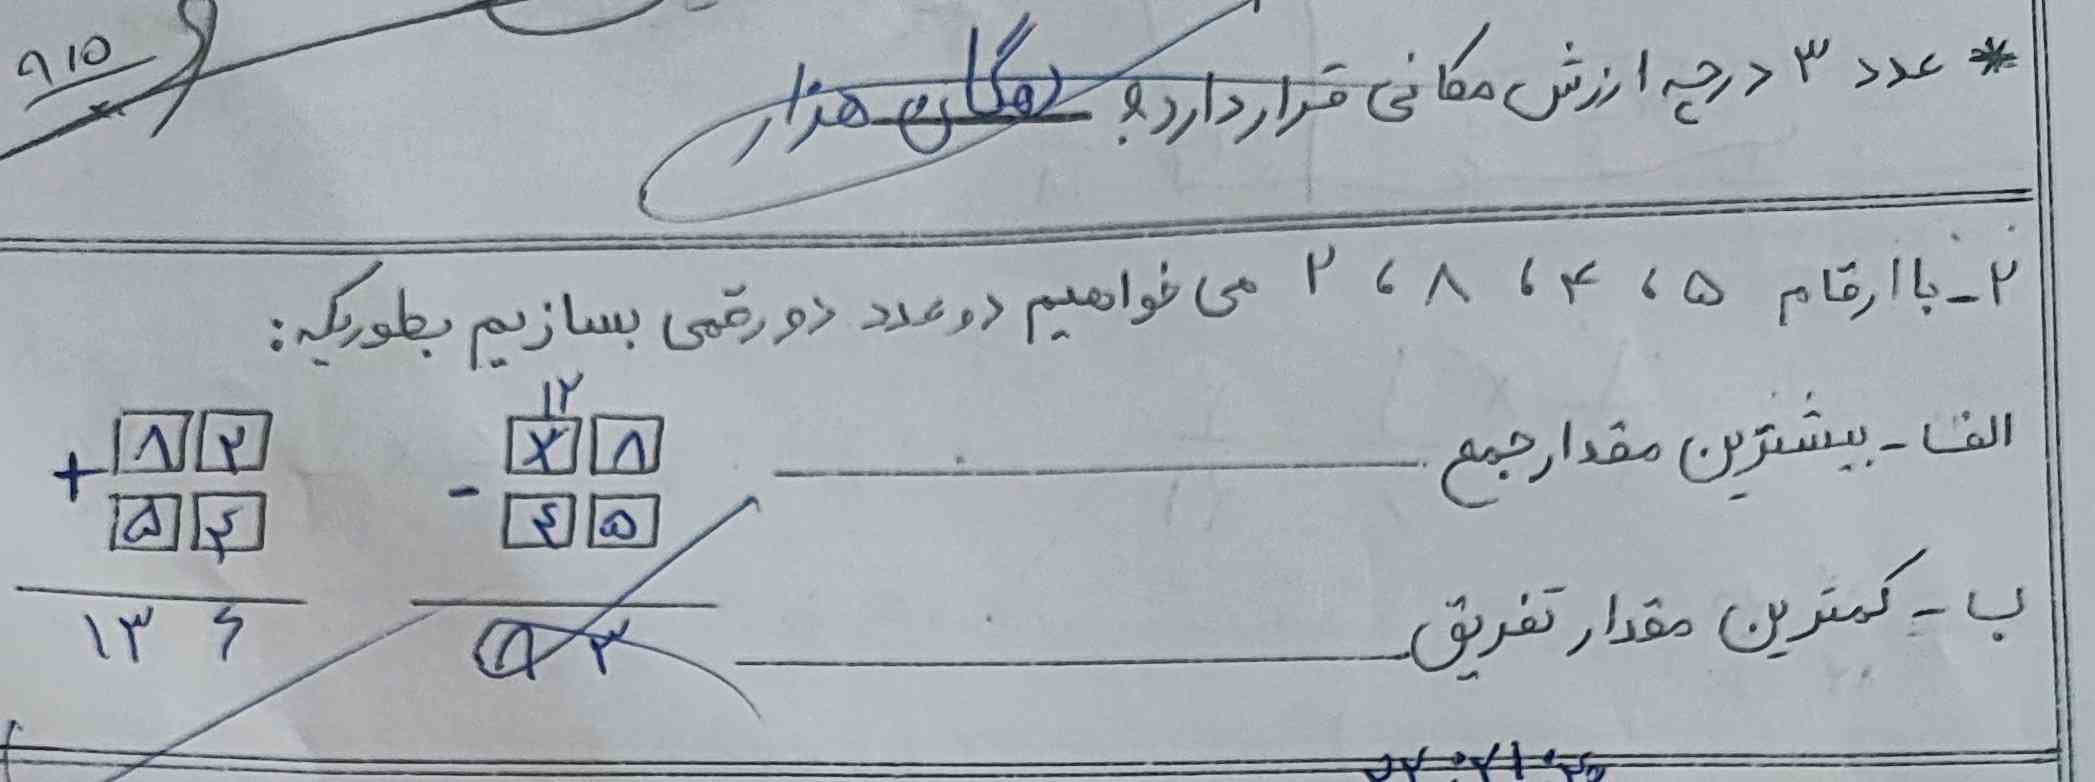 * عدد ۳ درچه ارزش مکانی قرار دارد؟ دهگان هزار
۹۱۵
۲ـ با ارقام ۵ ، ۴ ، ۸ ، ۲ می خواهیم دو عدد دو رقمی بسازیم بطوریکه:
الف ـ بیشترین مقدار جمع
۱۲
۲ ۸
- ۴ ۵
۳
۸ ۲
+ ۵ ۴
۱۳ ۶
ب ـ کمترین مقدار تفریق